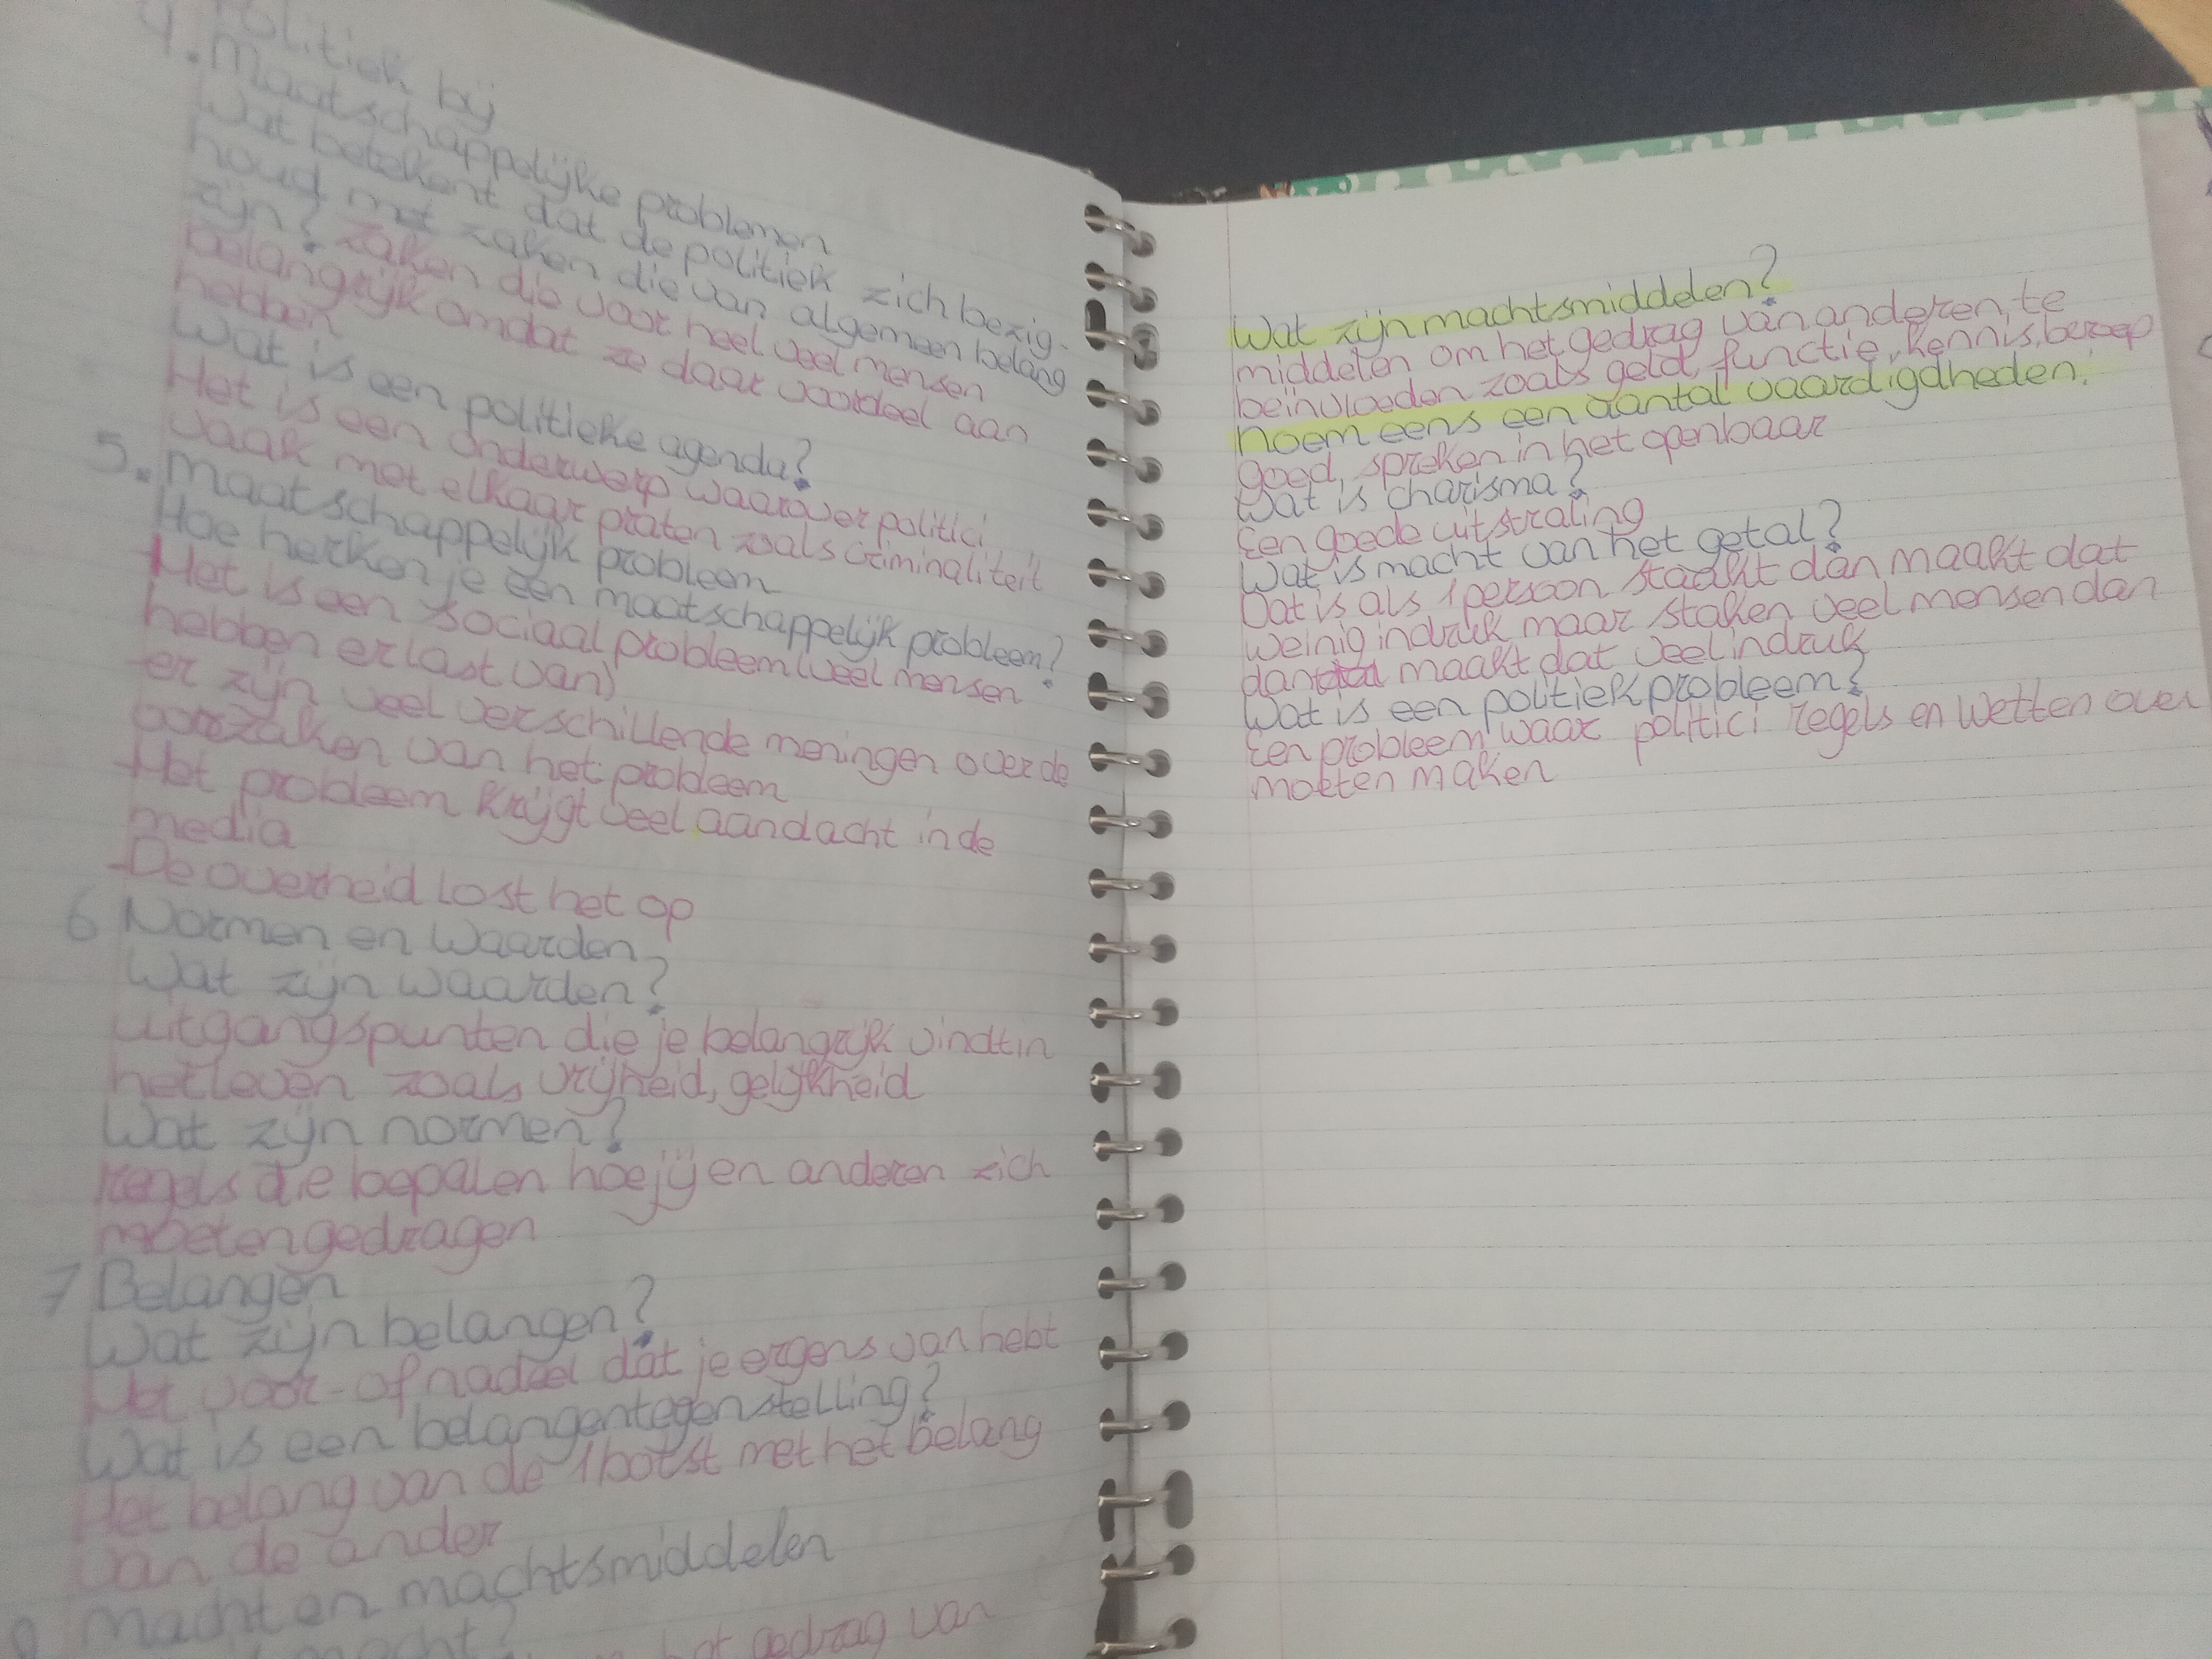 politiek bij
4. Maatschappelijke problemen
Wat betekent dat de politiek zich bezig-
houd met zaken die van algemeen belang
zijn? Zaken die voor heel veel mensen
belangrijk omdat ze daar voordeel aan
hebben
Wat is een politieke agenda?
Het is een onderwerp waarover politici
vaak met elkaar praten zoals criminaliteit
5. Maatschappelijk probleem
Hoe herken je een maatschappelijk probleem?
-Het is een sociaal probleem (veel mensen
hebben er last van)
-er zijn veel verschillende meningen over de
oorzaken van het probleem
-Het probleem krijgt veel aandacht in de
media
-De overheid lost het op
6 Normen en Waarden
Wat zijn waarden?
uitgangspunten die je belangrijk vindt in
het leven zoals vrijheid, gelijkheid
Wat zijn normen?
regels die bepalen hoe jij en anderen zich
moeten gedragen
7 Belangen
Wat zijn belangen?
Het voor- of nadeel dat je ergens van hebt
Wat is een belangentegenstelling?
Het belang van de 1 botst met het belang
van de ander
8 Macht en machtsmiddelen
macht?
het gedrag van
Wat zijn machtsmiddelen?
middelen om het gedrag van anderen, te
beïnvloeden zoals geld, functie, kennis, beroep
noem eens een aantal vaardigdheden.
goed, spreken in het openbaar
Wat is charisma?
Een goede uitstraling
Wat is macht van het getal?
Dat is als 1 persoon staakt dan maakt dat
weinig indruk maar staken veel mensen dan
dan maakt dat veel indruk
Wat is een politiek probleem?
Een probleem waar politici regels en wetten over
moeten maken